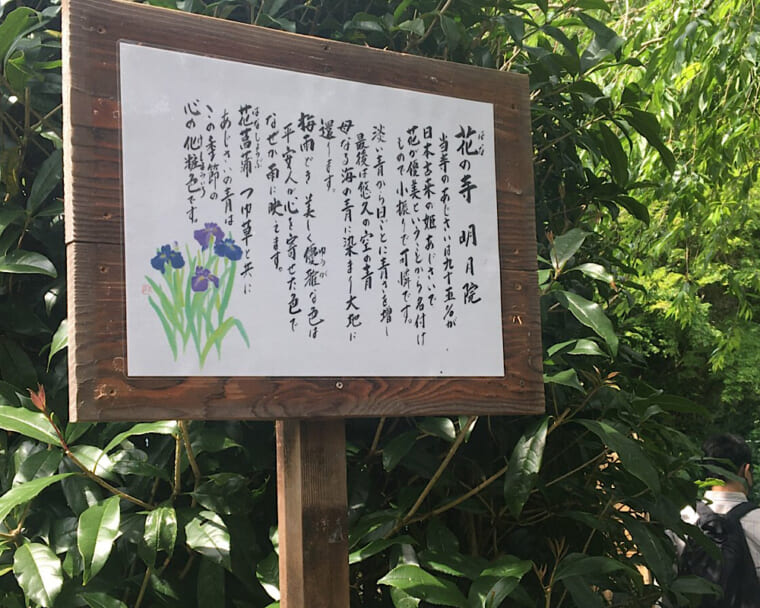 花の寺 明月院
はな
当寺のあじさいは九十五%が
日本古来の姫あじさいで
花が優美ということから名付け
もので小振りで可憐です。
淡い青から日ごとに青さを増し
最後は悠久の空の青
母なる海の青に染まり大地に
還ります。
梅雨どき美しく優雅な色は
ゆうが
平安人が心を寄せた色で
なぜか雨に映えます。
花菖蒲 つゆ草と共に
はなしょうぶ
あじさいの青は
この季節の
心の化粧色です。